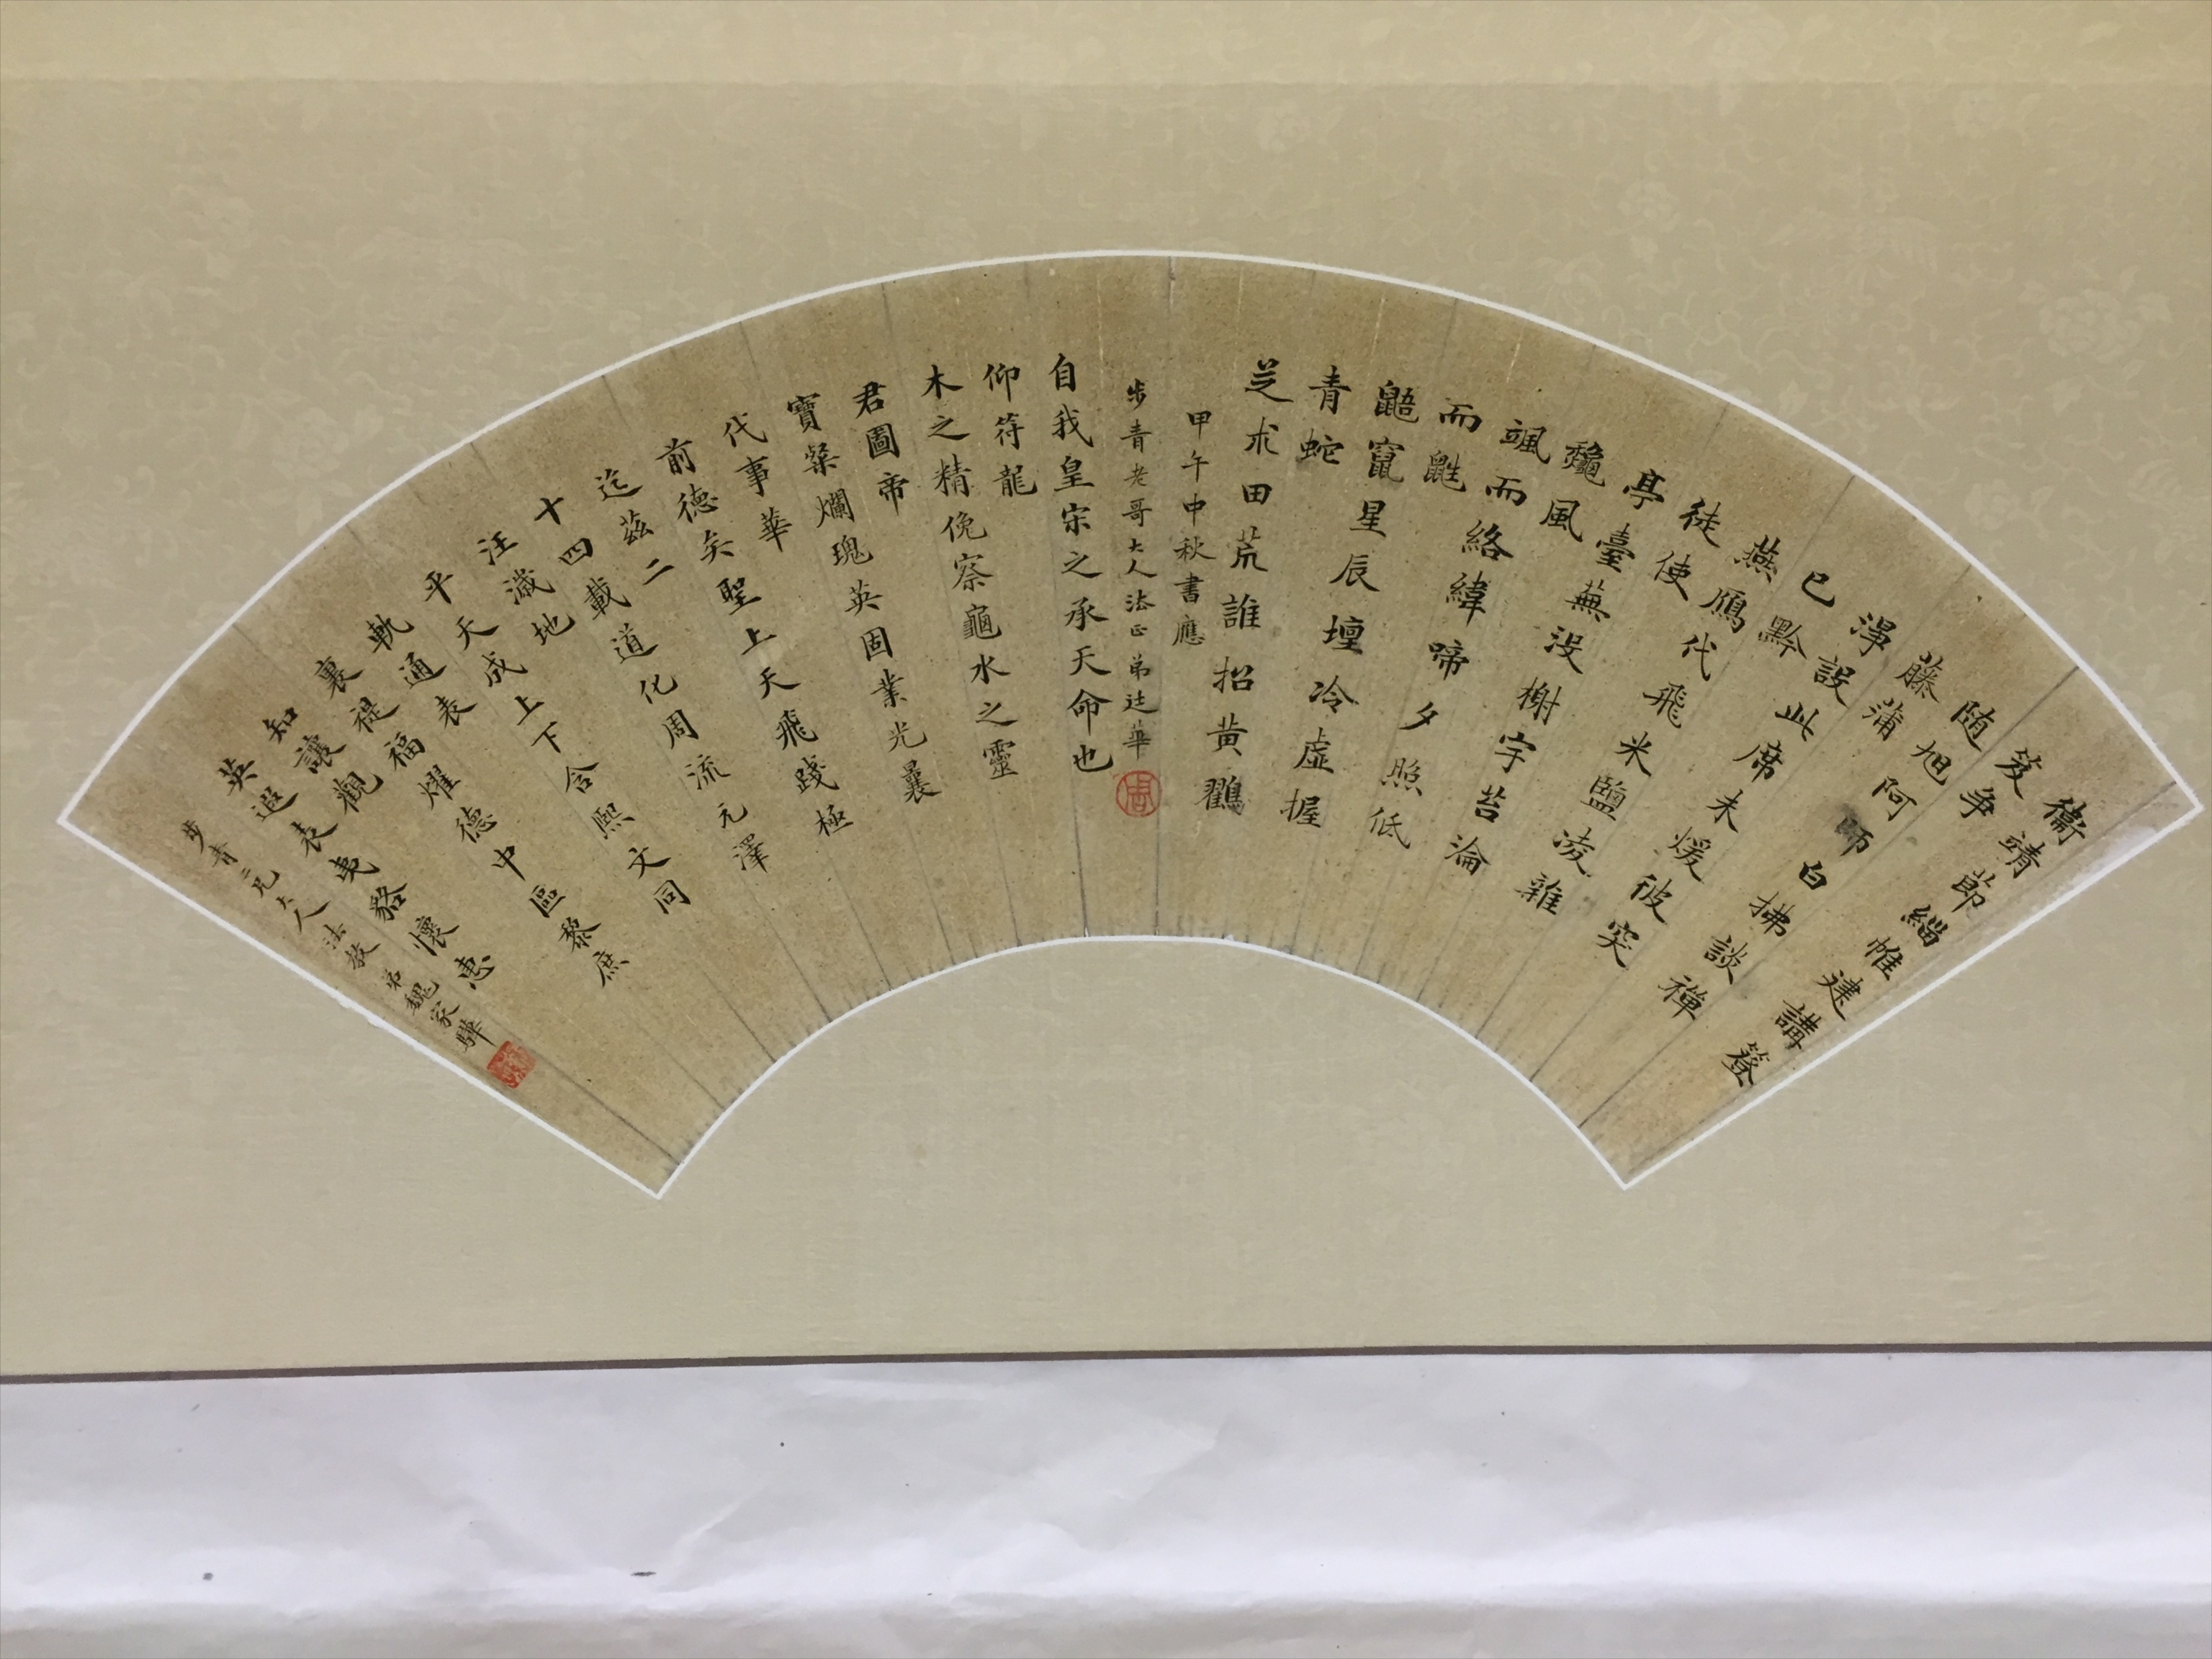 衞靖節緇帷建講簦
笈争
随旭阿師白拂談禪
藤蒲
淨設此席未煖彼突
已黔
燕鴈代飛米鹽淩雜
徒使
亭臺蕪没榭宇苔淪
龝風
颯而絡緯啼夕照低
而鼪
鼯竄星辰壇冷虛握
青蛇
芝朮田荒誰招黄鸛
甲午中秋書應
步青老哥大人法正弟廷華
周
自我皇宋之承天命也
仰符龍
木之精俛察龜水之靈
君圖帝
寶粲爛瑰英固業光曩
代事華
前德矣聖上天飛踐極
迄茲二
十四載道化周流元澤
汪濊地
平天成上下含熙文同
軌通表
裏禔福耀德中區黎庶
知讓觀
英遐表夷貊懷惠
步青二兄大人法教弟魏家驊